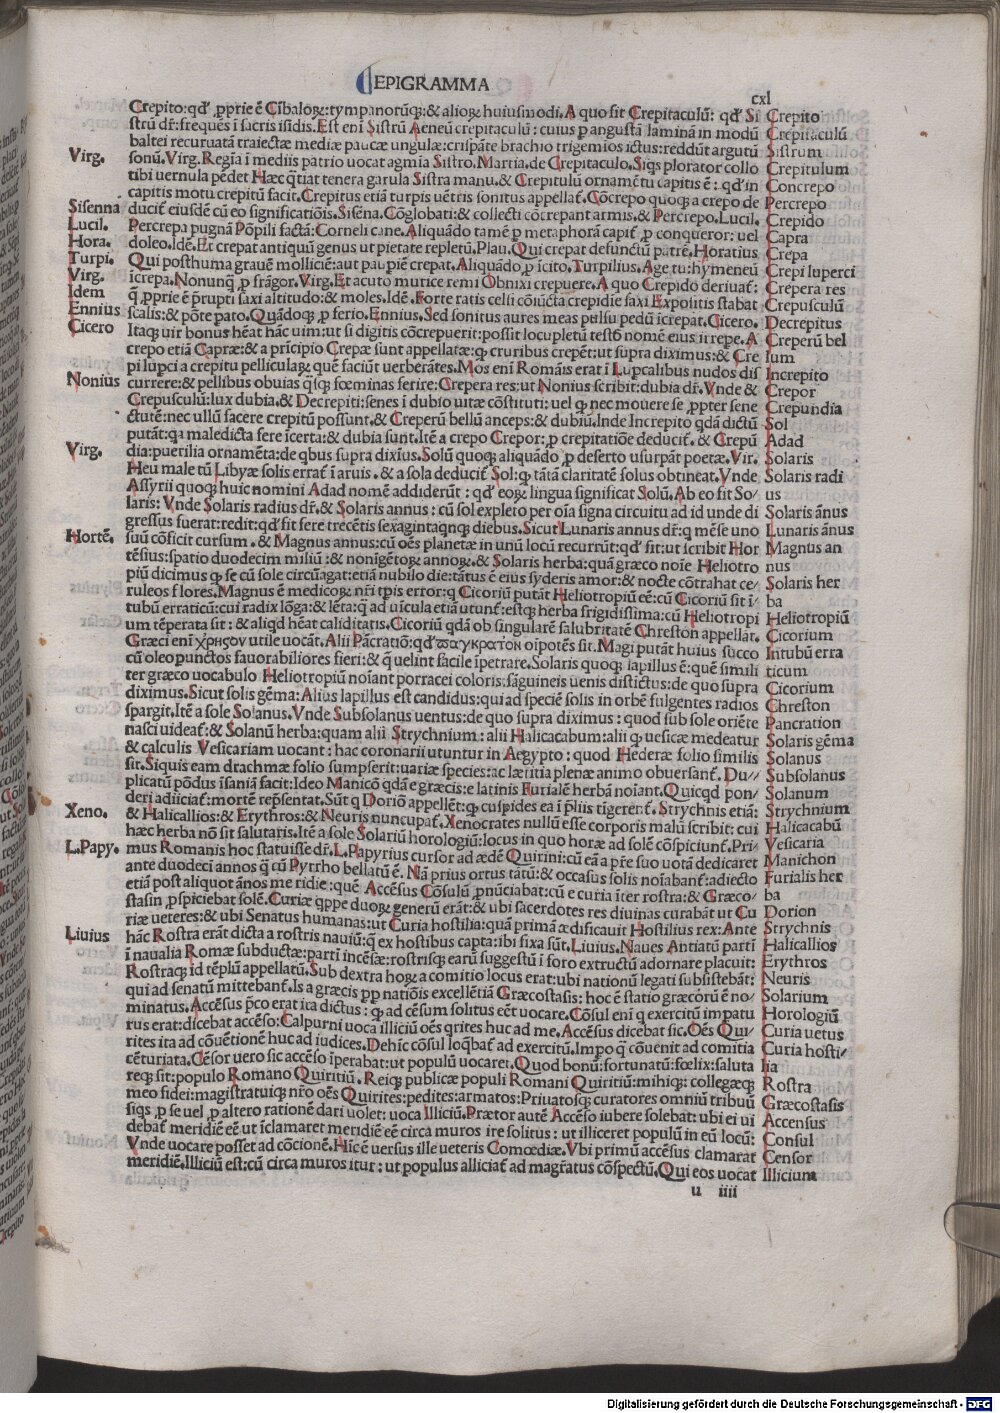 EPIGRAMMA
cxl
Crepito: qđ ꝓprie ē Cībaloꝝ: tympanotūqꝫ: & alioꝝ huiusmodi. A quo fit Crepitaculū: qđ Si
strū dr̄: frequēs ī sacris isidis. Est enī Sistrū Aeneū crepitaculū: cuius ꝑ angustā laminā in modū
baltei recuruatā traiectæ mediæ paucæ ungulæ: crispāte brachio trigemios ictus: reddūt argutū
sonū. Virg. Regīa ī mediis patrio uocat agmīa Sistro. Martia. de Crepitaculo. Siqs plorator collo
tibi uernula pēdet Hæc q̄tiat tenera garula Sistra manu. & Crepitulū ornamētu capitis ē: qđ in
capitis motu crepitū facit. Crepitus etiā turpis uētris sonitus appellat̄. Cōcrepo quoqꝫ a crepo de
ducit̄ eiusdē cū eo significatiōis. Sisēna. Cōglobati: & collecti cōcrepant armis. & Percrepo. Lucil.
Percrepa pugnā Popili factā: Corneli cane. Aliquādo tamē ꝑ metaphorā capit̄ ꝑ conqueror: uel
doleo. Idē. Et crepat antiquū genus ut pietate repletū. Plau. Qui crepat defunctū patrē. Horatius
Qui posthuma grauē molliciē: aut paupiē crepat. Aliquādo ꝑ īcito. Turpilius. Age tu: hymeneū
īcrepa. Nonunq̄ ꝑ frāgor. Virg. Et acuto murice remi Obnixi crepuere. A quo Crepido deriuat̄:
q̄ ꝓprie ē p̄rupti saxi altitudo: & moles. Idē. Forte ratis celsi cōiūcta crepidie saxi Expositis stabat
scalis: & pōte pato. Quādoqꝫ ꝑ ferio. Ennius. Sed sonitus aures meas pulsu pedū īcrepat. Cicero.
Itaqꝫ uir bonus hēat hāc uim: ut si digitis cōcrepuerit: possit locupletū testō nomē eius irrepe. A
crepo etiā Capræ: & a prīcipio Crepæ sunt appellatæ: qꝫ cruribus crepēt: ut supra diximus: & Cre
pi lupci a crepitu pelliculaꝝ quē faciūt uerberātes. Mos enī Romāis erat ī Lupcalibus nudos dis
currere: & pellibus obuias q̄sqꝫ fœminas ferire: Crepera res: ut Nonius scribit: dubia dr̄. Vnde &
Crepusculū: lux dubia. & Decrepiti: senes ī dubio uitæ cōstituti: uel qꝫ nec mouere se ꝓpter sene
ctutē: nec ullū facere crepitū possunt. & Creperū bellū anceps: & dubiū. Inde Increpito qdā dictū
putāt: qa maledicta fere īcerta: & dubia sunt. Itē a crepo Crepor: ꝑ crepitatiōe deducit̄. & Crepū
dia: puerilia ornamēta: de qbus supra dixius. Solū quoqꝫ aliquādo ꝑ deserto usurpāt poetæ. Vir.
Heu male tū Libyæ solis errat̄ ī aruis. & a sola deducit̄ Sol: qꝫ tātā claritatē solus obtineat. Vnde
Assyrii quoqꝫ huic nomini Adad nomē addiderūt: qđ eoꝝ lingua significat Solū. Ab eo fit So/
laris: Vnde Solaris radius dr̄. & Solaris annus: cū sol expleto per oīa signa circuitu ad id unde di
gressus fuerat: redit: qđ fit fere trecētis sexagintaqnqꝫ diebus. Sicut Lunaris annus dr̄: q mēse uno
suū cōficit cursum. & Magnus annus: cū oēs planetæ in unū locū recurrūt: qđ fit: ut scribit Hor
tēsius: spatio duodecim miliū: & nonigētoꝝ annoꝝ. & Solaris herba: quā græco noīe Heliotro
piū dicimus qꝫ se cū sole circūagat: etiā nubilo die: tātus ē eius syderis amor: & nocte cōtrahat ce/
ruleos flores. Magnus ē medicoꝝ nr̄i tꝑis error: q Cicoriū putāt Heliotropiū eē: cū Cicoriū sit ī/
tubū erraticū: cui radix lōga: & lēta: q̄ ad uīcula etiā utunt̄: estqꝫ herba frigidissima: cū Heliotropi
um tēperata sit: & aliqd hēat caliditatis. Cicoriū qdā ob singularē salubritatē Chreston appellāt.
Græci enī χρησον utile uocāt. Alii Pācratiō: qđ παγκρατον oīpotēs sit. Magi putāt huius succo
cū oleo punctos fauorabiliores fieri: & q̄ uelint facile īpetrare. Solaris quoqꝫ lapillus ē: quē simili
ter græco uocabulo Heliotropiū noīant porracei coloris: sāguineis uenis distīctus: de quo supra
diximus. Sicut solis gēma: Alius lapillus est candidus: qui ad speciē solis in orbē fulgentes radios
spargit. Itē a sole Solanus. Vnde Subsolanus uentus: de quo supra diximus: quod sub sole oriēte
nasci uideat̄: & Solanū herba: quam alii Strychnium: alii Halicacabum: alii qꝫ uesicæ medeatur
& calculis Vesicariam uocant: hac coronarii utuntur in Aegypto: quod Hederæ folio similis
sit. Siquis eam drachmæ folio sumpserit: uariæ species: ac lætitia plenæ animo obuersant̄. Du//
plicatū pōdus īsaniā facit: Ideo Manicō qdā e græcis: e latinis Furialē herbā noīant. Quicqd pon/
deri adiiciat̄: mortē rep̄sentat. Sūt q Doriō appellēt: qꝫ cuspides ea ī p̄liis tigerent̄. Strychnis etiā:
& Halicallios: & Erythros: & Neuris nuncupat̄. Xenocrates nullū esse corporis malū scribit: cui
hæc herba nō sit salutaris. Itē a sole Solariū horologiū: locus in quo horæ ad solē cōspiciunt̄. Pri/
mus Romanis hoc statuisse dr̄. L. Papyrius cursor ad ædē Quirini: cū eā a pr̄e suo uotā dedicaret
ante duodecī annos q̄ cū Pyrrho bellatū ē. Nā prius ortus tātū: & occasus solis noīabant̄: adiecto
etiā post aliquot ānos meridie: quē Accēsus Cōsulū ꝓnūciabat: cū e curia īter rostra: & Græco/
stasin ꝓspiciebat solē. Curiæ qppe duoꝝ generū erāt: & ubi sacerdotes res diuinas curabāt ut Cu
riæ ueteres: & ubi Senatus humanas: ut Curia hostilia: quā primā ædificauit Hostilius rex: Ante
hāc Rostra erāt dicta a rostris nauiū: q̄ ex hostibus capta: ibi fixa sūt. Liuius. Naues Antiatū partī
ī naualia Romæ subductæ: parti incēsæ: rostrisqꝫ earū suggestū ī foro extructū adornare placuit:
Rostraqꝫ id tēplū appellatū. Sub dextra hoꝝ a comitio locus erat: ubi nationū legati subsistebāt:
qui ad senatū mittebant̄. Is a græcis ꝑp natiōis excellētiā Græcostasis: hoc ē statio græcorū ē no/
minatus. Accēsus p̄co erat ita dictus: qꝫ ad cēsum solitus eēt uocare. Cōsul enī q exercitū impatu
rus erat: dicebat accēso: Calpurni uoca illiciū oēs qrites huc ad me. Accēsus dicebat sic. Oēs Qui/
rites ita ad cōuētionē huc ad iudices. Dehīc cōsul loqbat̄ ad exercitū. Impo q̄ cōuenit ad comitia
cēturiata. Cēsor uero sic accēso īperabat: ut populū uocaret. Quod bonū: fortunatū: fœlix: saluta
reqꝫ sit: populo Romano Quiritiū. Reiqꝫ publicæ populi Romani Quiritiū: mihiqꝫ: collegæqꝫ
meo fidei: magistratuiqꝫ nr̄o oēs Quirites: pedites: armatos: Priuatosqꝫ curatores omniū tribuū
siqs ꝑ se uel ꝑ altero rationē dari uolet: uoca Illiciū. Prætor autē Accēso iubere solebat: ubi ei ui
debat̄ meridiē eē ut īclamaret meridiē eē circa muros ire solitus: ut illiceret populū in eū locū:
Vnde uocare posset ad cōcionē. Hīc ē uersus ille ueteris Comœdiæ. Vbi primū accēsus clamarat
meridiē. Illiciū est: cū circa muros itur: ut populus alliciat̄ ad magr̄atus cōspectū. Qui eos uocat
u iiii
Virg.
Sisenna
Lucil.
Hora.
Turpi.
Virg.
Idem
Ennius
Cicero
Nonius
Virg.
Hortē.
Xeno.
L. Papy.
Liuius
Crepito
Crepitaculū
Sistrum
Crepitulum
Concrepo
Percrepo
Crepido
Capra
Crepa
Crepi luperci
Crepera res
Crepusculū
Decrepitus
Creperū bel
lum
Increpito
Crepor
Crepundia
Sol
Adad
Solaris
Solaris radi
us
Solaris ānus
Lunaris ānus
Magnus an
nus
Solaris her
ba
Heliotropiū
Cicorium
Intubū erra
ticum
Cicorium
Chreston
Pancration
Solaris gēma
Solanus
Subsolanus
Solanum
Strychnium
Halicacabū
Vesicaria
Manichon
Furialis her
ba
Dorion
Strychnis
Halicallios
Erythros
Neuris
Solarium
Horologiū
Curia uetus
Curia hosti/
lia
Rostra
Græcostasis
Accensus
Consul
Censor
Illicium
Digitalisierung gefördert durch die Deutsche Forschungsgemeinschaft - DFG